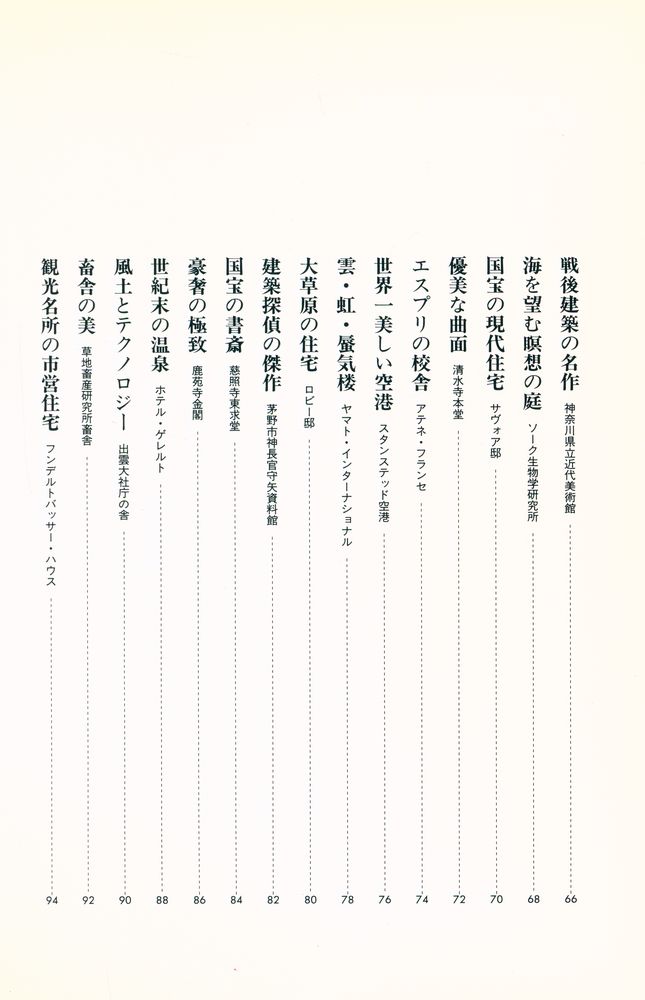 戦後建築の名作 神奈川県立近代美術館 66
海を望む瞑想の庭 ソーク生物学研究所 68
国宝の現代住宅 サヴォア邸 70
優美な曲面 清水寺本堂 72
エスプリの校舎 アテネ・フランセ 74
世界一美しい空港 スタンステッド空港 76
雲・虹・蜃気楼 ヤマト・インターナショナル 78
大草原の住宅 ロビー邸 80
建築探偵の傑作 茅野市神長官守矢資料館 82
国宝の書斎 慈照寺東求堂 84
豪奢の極致 鹿苑寺金閣 86
世紀末の温泉 ホテル・ゲレルト 88
風土とテクノロジー 出雲大社庁の舎 90
畜舎の美 草地畜産研究所畜舎 92
観光名所の市営住宅 フンデルトバッサー・ハウス 94